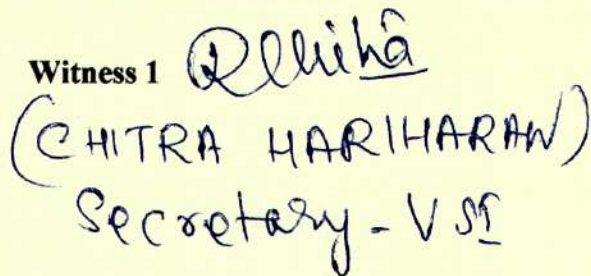 Witness 1
(CHITRA HARIHARAN)
Secretary - VSI